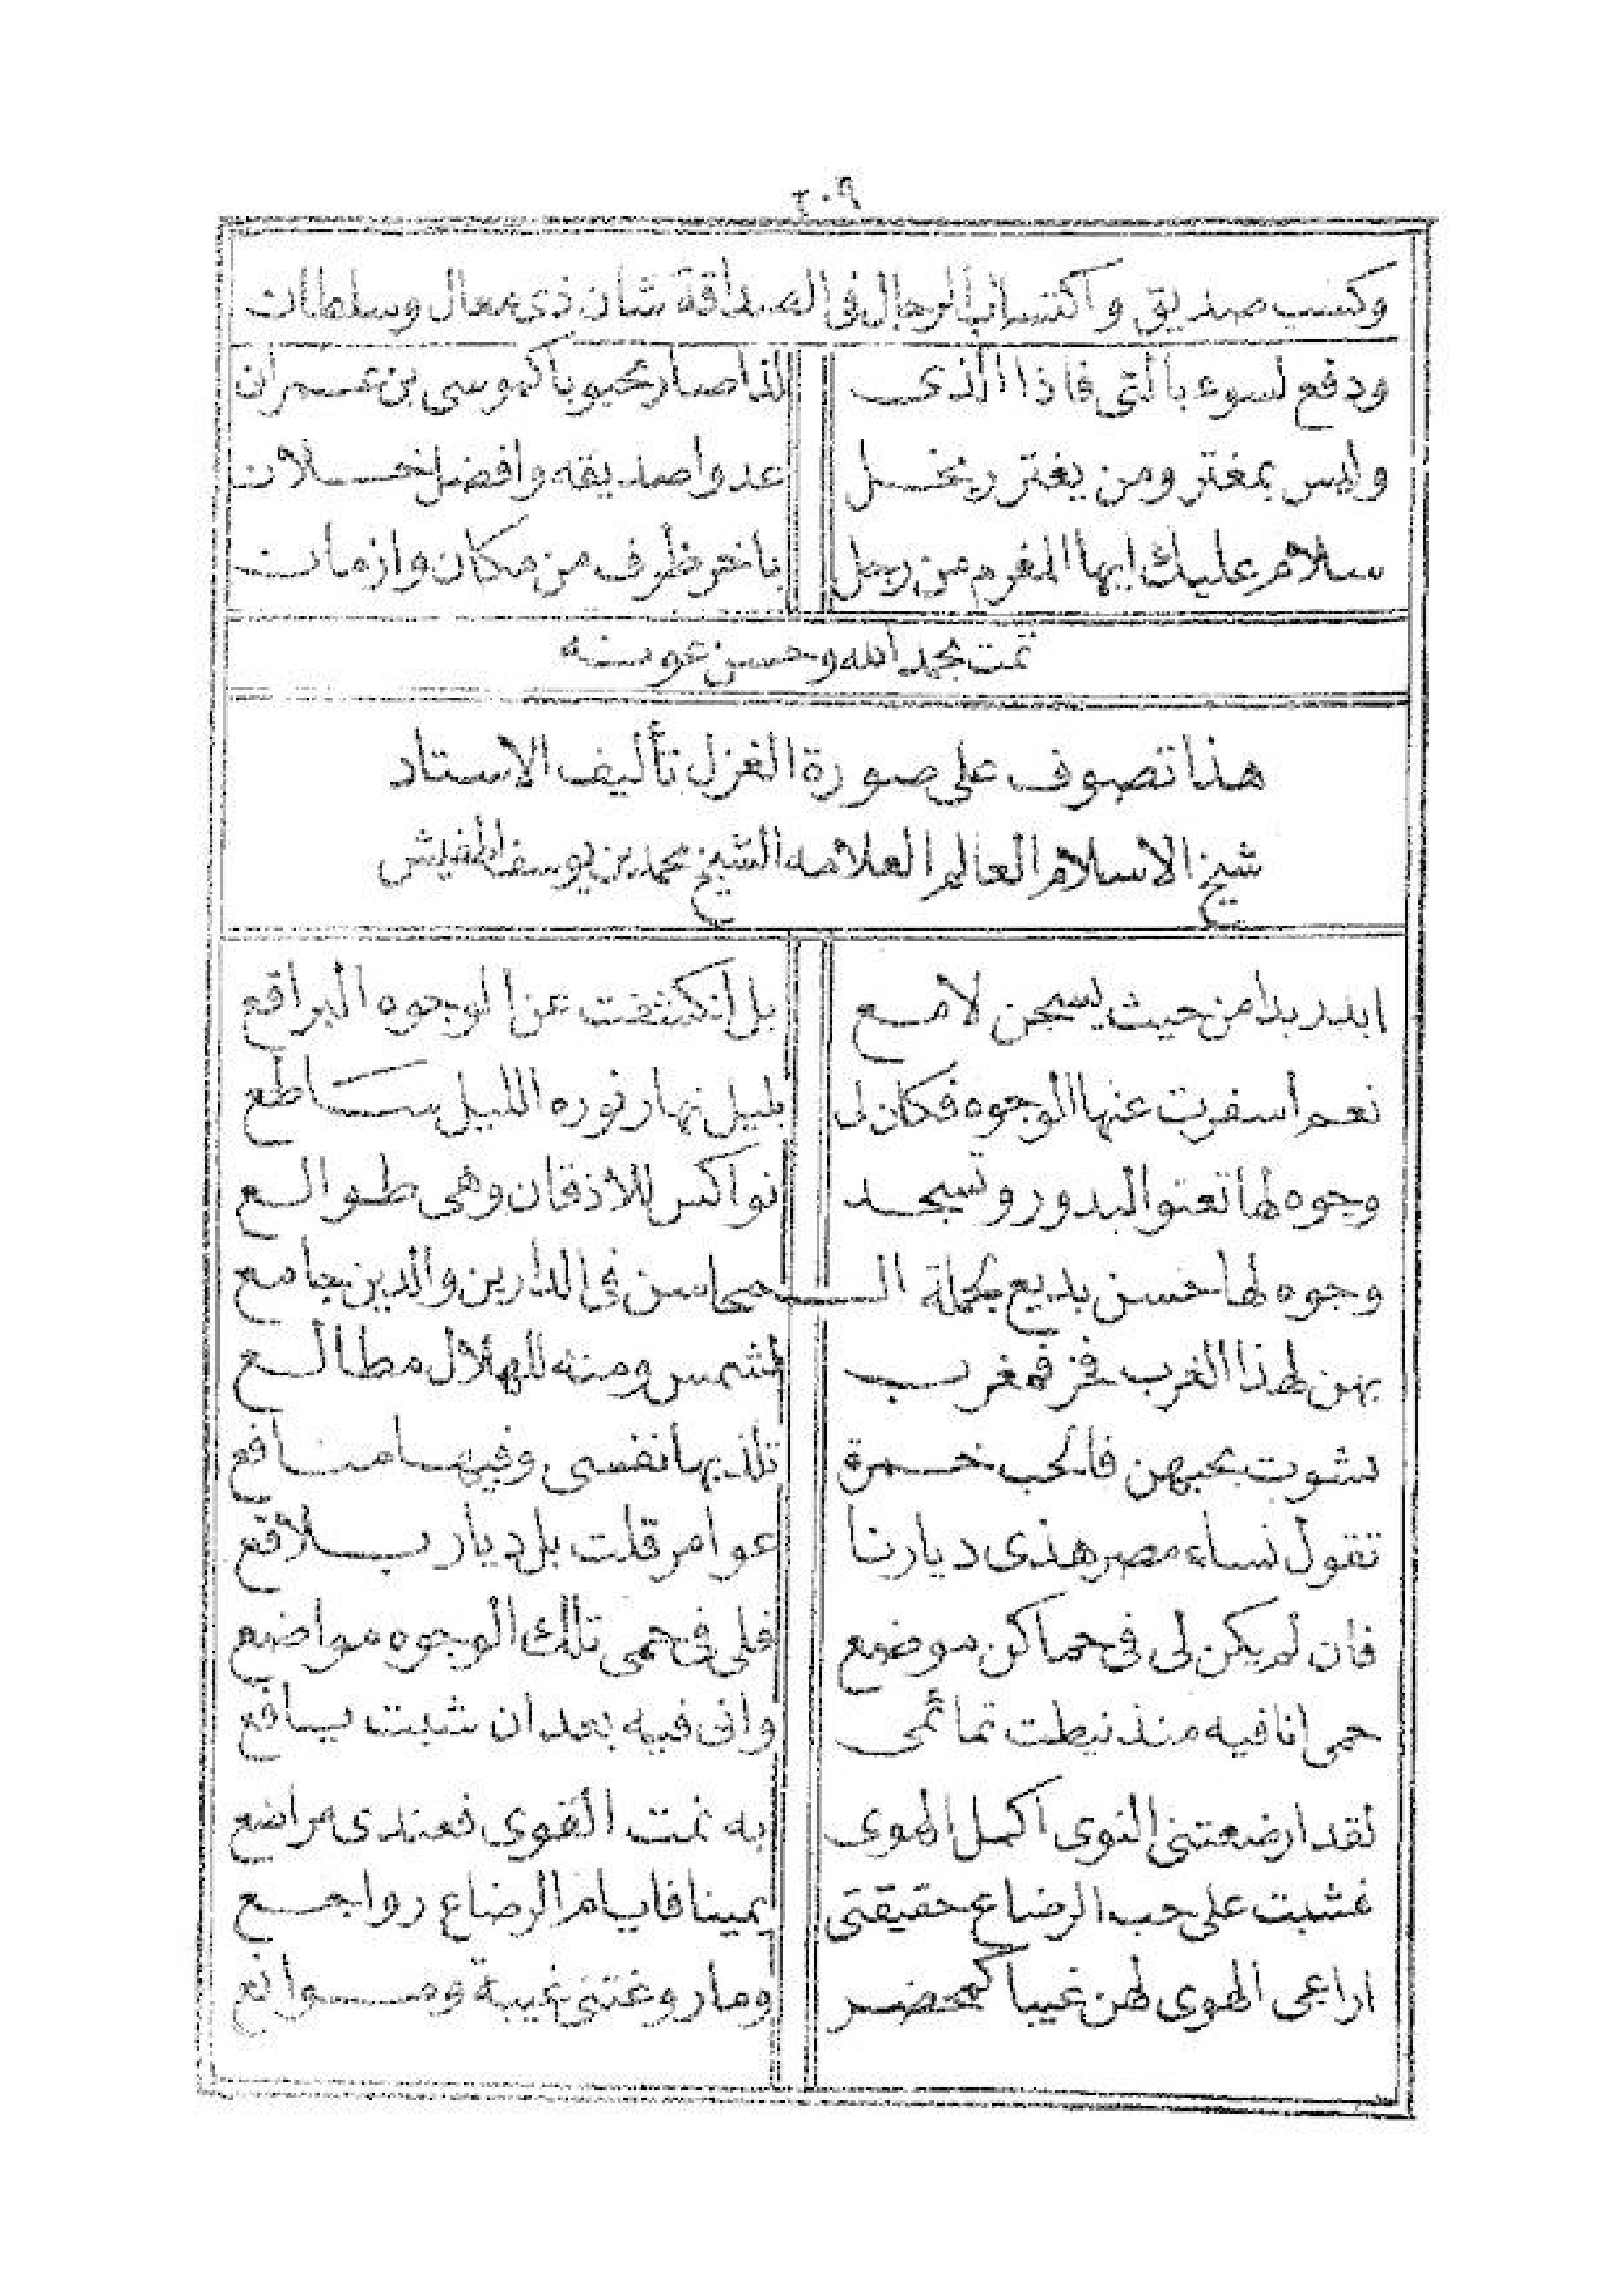 ٢٠٩
وكسب صديق واكتساب الرجال فى الصداقة شان ذى معال وسلطان
ودفع لسوء بالتى فاذا الذى لذا صار محبوبا كموسى بن عمران
وليس بمغتر ومن يغتر يخل عدوا صديقه وافضل خلان
سلام عليك ايها المغرم من رجل باخر ظرف من مكان وازمان
تمت بحمد الله وحسن عونه
هذا تصوف على صورة الغزل تأليف الاستاد
شيخ الاسلام العالم العلامه الشيخ محمد بن يوسف اطفيش
ابدر بدا من حيث يسجن لامع بل انكشفت عن الوجوه البراقع
نعم أسفرت عنها الوجوه فكان لى بليل نهار نوره الليل ساطع
وجوه لها تعنو البدور وتسجد نواكس للاذقان وهى طوالع
وجوه لها حسن بديع بجملة الـمحاسن فى الدارين والدين جامع
بهن لهذا الغرب فخر فمغرب لشمس ومنه للهلال مطالع
نشوت بحبهن فالحب خمرة تلذ بها نفسى وفيها منافع
تقول نساء مصر هذى ديارنا عوامر قلت بل ديار بلاقع
فان لم يكن لى فى حماكن موضع فلى فى حمى تلك الوجوه مواضع
حمى انا فيه منذ نيطت تمائمى وانى فيه بعد ان شبت يافع
لقد ارضعتنى النوى اكمل الهوى به نمت القوى فعندى مراضع
فشبت على حب الرضاع حقيقتى يمينا فايام الرضاع رواجع
اراعى الهوى لهن غيبا كمحضر وما روغتنى غيبة وموانع